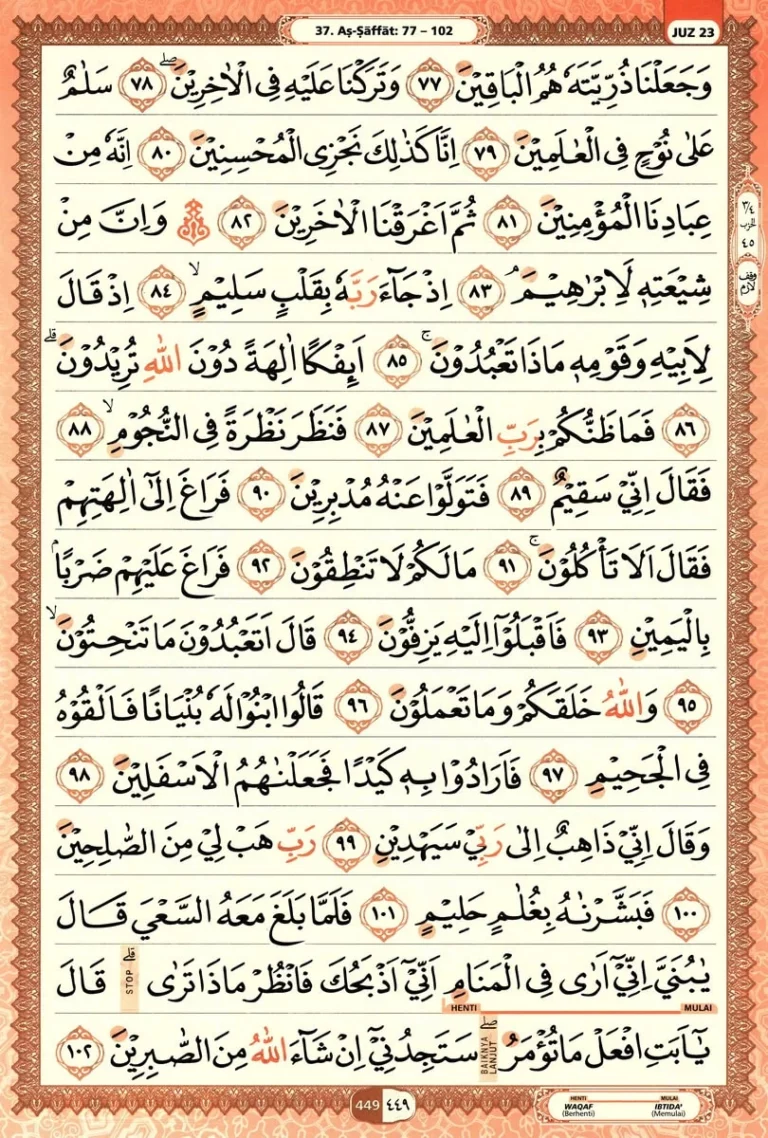 37. Aṣ-Ṣāffāt: 77 – 102
JUZ 23
وَجَعَلْنَا ذُرِّيَّتَهٗ هُمُ الْبَاقِيْنَ ﴿٧٧﴾ وَتَرَكْنَا عَلَيْهِ فِى الْاٰخِرِيْنَ ۖ ﴿٧٨﴾ سَلٰمٌ
عَلٰى نُوْحٍ فِى الْعٰلَمِيْنَ ﴿٧٩﴾ اِنَّا كَذٰلِكَ نَجْزِى الْمُحْسِنِيْنَ ﴿٨٠﴾ اِنَّهٗ مِنْ
عِبَادِنَا الْمُؤْمِنِيْنَ ﴿٨١﴾ ثُمَّ اَغْرَقْنَا الْاٰخَرِيْنَ ﴿٨٢﴾ وَاِنَّ مِنْ
شِيْعَتِهٖ لَاِبْرٰهِيْمَ ۘ ﴿٨٣﴾ اِذْ جَاۤءَ رَبَّهٗ بِقَلْبٍ سَلِيْمٍۙ ﴿٨٤﴾ اِذْ قَالَ
لِاَبِيْهِ وَقَوْمِهٖ مَاذَا تَعْبُدُوْنَ ۚ ﴿٨٥﴾ اَىِٕفْكًا اٰلِهَةً دُوْنَ اللّٰهِ تُرِيْدُوْنَ ۗ
﴿٨٦﴾ فَمَا ظَنُّكُمْ بِرَبِّ الْعٰلَمِيْنَ ﴿٨٧﴾ فَنَظَرَ نَظْرَةً فِى النُّجُوْمِۙ ﴿٨٨﴾
فَقَالَ اِنِّيْ سَقِيْمٌ ﴿٨٩﴾ فَتَوَلَّوْا عَنْهُ مُدْبِرِيْنَ ﴿٩٠﴾ فَرَاغَ اِلٰٓى اٰلِهَتِهِمْ
فَقَالَ اَلَا تَأْكُلُوْنَ ۚ ﴿٩١﴾ مَا لَكُمْ لَا تَنْطِقُوْنَ ﴿٩٢﴾ فَرَاغَ عَلَيْهِمْ ضَرْبًا ۢ
بِالْيَمِيْنِ ﴿٩٣﴾ فَاَقْبَلُوْٓا اِلَيْهِ يَزِفُّوْنَ ﴿٩٤﴾ قَالَ اَتَعْبُدُوْنَ مَا تَنْحِتُوْنَۙ
﴿٩٥﴾ وَاللّٰهُ خَلَقَكُمْ وَمَا تَعْمَلُوْنَ ﴿٩٦﴾ قَالُوا ابْنُوْا لَهٗ بُنْيَانًا فَاَلْقُوْهُ
فِى الْجَحِيْمِ ﴿٩٧﴾ فَاَرَادُوْا بِهٖ كَيْدًا فَجَعَلْنٰهُمُ الْاَسْفَلِيْنَ ﴿٩٨﴾
وَقَالَ اِنِّيْ ذَاهِبٌ اِلٰى رَبِّيْ سَيَهْدِيْنِ ﴿٩٩﴾ رَبِّ هَبْ لِيْ مِنَ الصّٰلِحِيْنَ
﴿١٠٠﴾ فَبَشَّرْنٰهُ بِغُلٰمٍ حَلِيْمٍ ﴿١٠١﴾ فَلَمَّا بَلَغَ مَعَهُ السَّعْيَ قَالَ
يٰبُنَيَّ اِنِّيْٓ اَرٰى فِى الْمَنَامِ اَنِّيْٓ اَذْبَحُكَ فَانْظُرْ مَاذَا تَرٰىۗ STOP قَالَ
MULAI HENTI
يٰٓاَبَتِ افْعَلْ مَا تُؤْمَرُۖ BAIKNYA LANJUT سَتَجِدُنِيْٓ اِنْ شَاۤءَ اللّٰهُ مِنَ الصّٰبِرِيْنَ ﴿١٠٢﴾
٣/٤ الحزب ٤٥
وقف لازم
449 ٤٤٩
HENTI WAQAF (Berhenti)
MULAI IBTIDA' (Memulai)